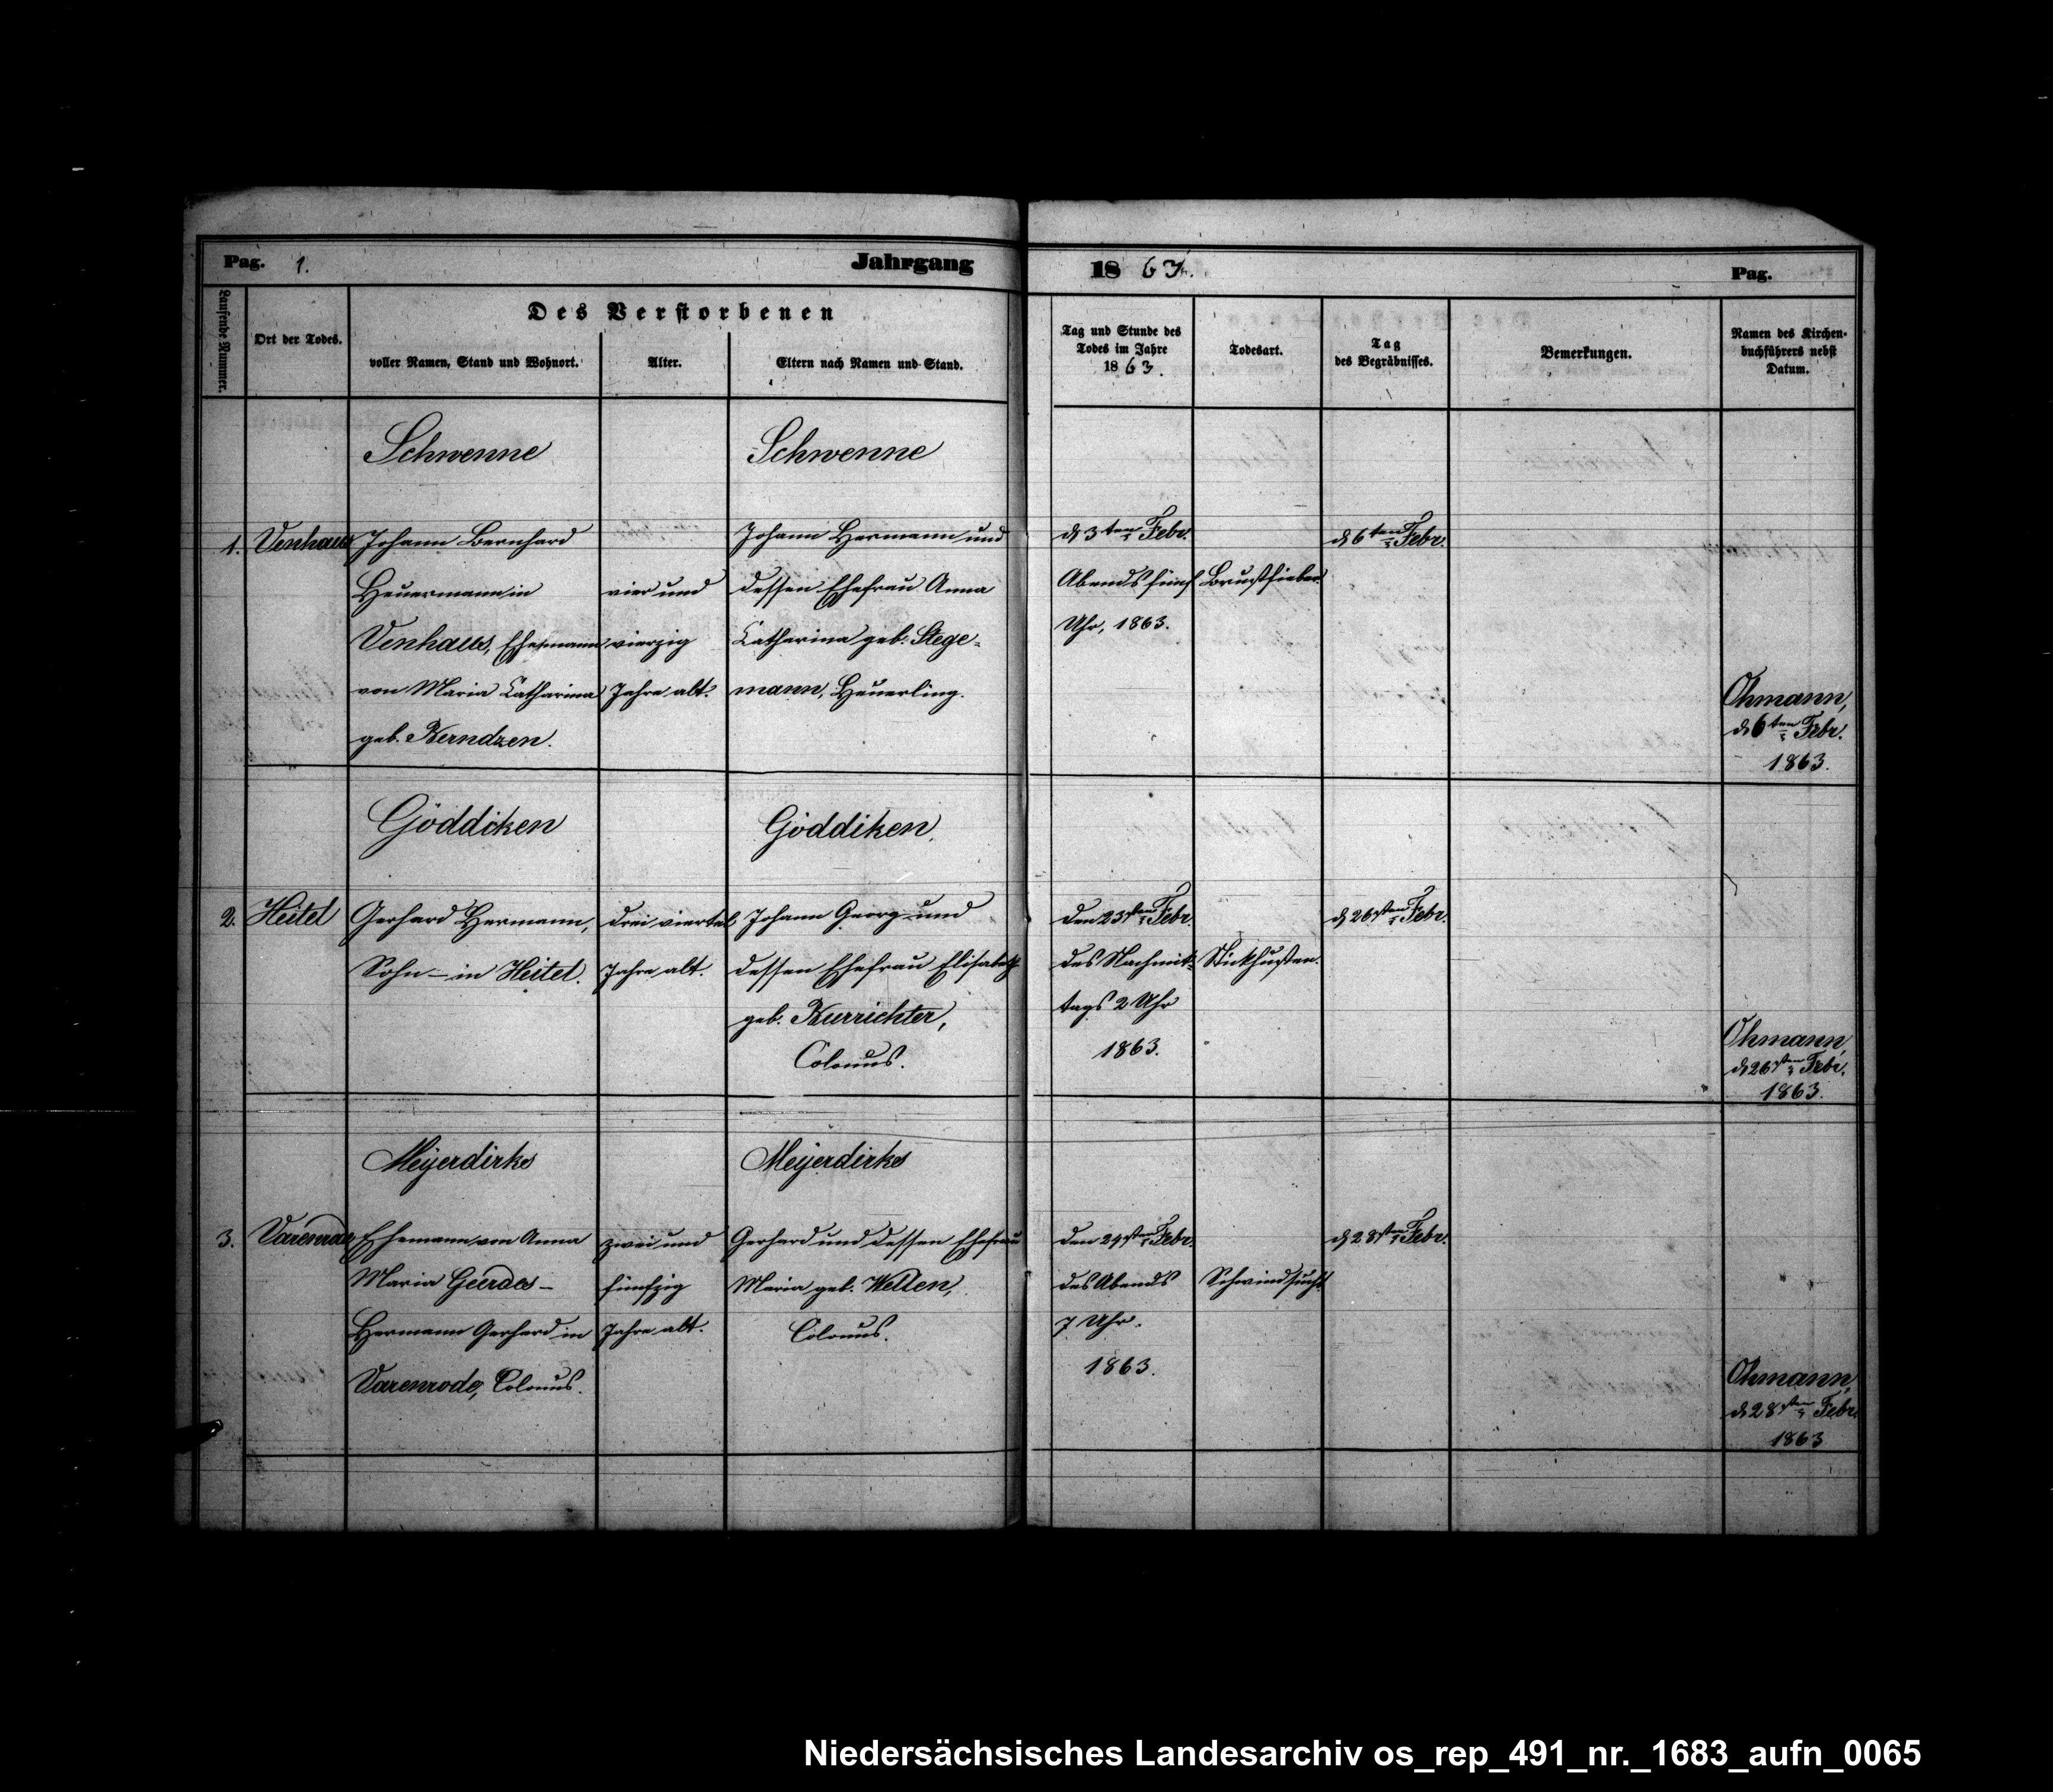 Pag. 1.
Jahrgang
1863.
Pag.
Laufende Nummer.
Ort der Todes.
Des Verstorbenen
voller Namen, Stand und Wohnort.
Alter.
Eltern nach Namen und Stand.
Tag und Stunde des
Todes im Jahre
1863.
Todesart.
Tag
des Begräbnisses.
Bemerkungen.
Namen des Kirchen-
buchführers nebst
Datum.
1.
Venhaus
Schwenne
Johann Bernhard
Heuermann in
Venhaus, Ehemann
von Maria Catharina
geb. Berndzen.
vier und
vierzig
Jahre alt.
Schwenne
Johann Hermann und
dessen Ehefrau Anna
Catharina geb. Stege-
mann, Heuerling.
d 3ten Febr.
Abends fünf
Uhr, 1863.
Brustfieber
d 6ten Febr.
Ohmann,
d 6ten Febr.
1863.
2.
Heitel
Göddiken
Gerhard Hermann,
Sohn – in Heitel.
drei viertel
Jahre alt.
Göddiken,
Johann Georg und
dessen Ehefrau Elisabeth
geb. Kurrichter,
Colonus.
den 23sten Febr.
des Nachmit-
tags 2 Uhr
1863.
Stickhusten.
d 26sten Febr.
Ohmann,
d 26sten Febr.
1863.
3.
Varenrode
Meyerdirks
Ehemann von Anna
Maria Geerdes –
Hermann Gerhard in
Varenrode, Colonus.
zwei und
fünfzig
Jahre alt.
Meyerdirks
Gerhard und dessen Ehefrau
Maria geb. Welten,
Colonus.
den 24sten Febr.
des Abends
7 Uhr.
1863.
Schwindsucht
d 28sten Febr.
Ohmann,
d 28sten Febr.
1863
Niedersächsisches Landesarchiv os_rep_491_nr._1683_aufn_0065